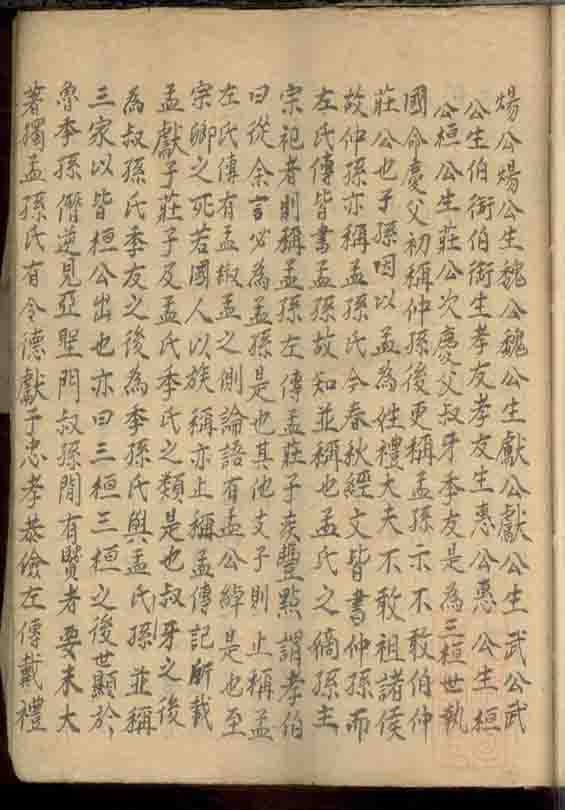 煬公煬公生魏公魏公生獻公獻公生武公武
公生伯衙伯衙生孝友孝友生惠公惠公生桓
公桓公生莊公次慶父叔牙季友是為三桓世執
國命慶父初稱仲孫後更稱孟孫示不敢伯仲
莊公也子孫因以孟為姓禮大夫不敢祖諸侯
故仲孫亦稱孟孫氏今春秋經文皆書仲孫而
左氏傳皆書孟孫故知並稱也孟氏之嫡孫主
宗祀者則稱孟孫左傳孟莊子疾豐點謂孝伯
曰從余言必為孟孫是也其他支子則止稱孟
左氏傳有孟椒孟之側論語有孟公綽是也至
宗卿之死若國人以族稱亦止稱孟傳記所載
孟獻子莊子及孟氏季氏之類是也叔牙之後
為叔孫氏季友之後為季孫氏與孟氏孫並稱
三家以皆桓公出也亦曰三桓三桓之後世顯於
魯季孫僭逆見亞聖門叔孫間有賢者要未大
著獨孟孫氏有令德獻子忠孝恭儉左傳戴禮